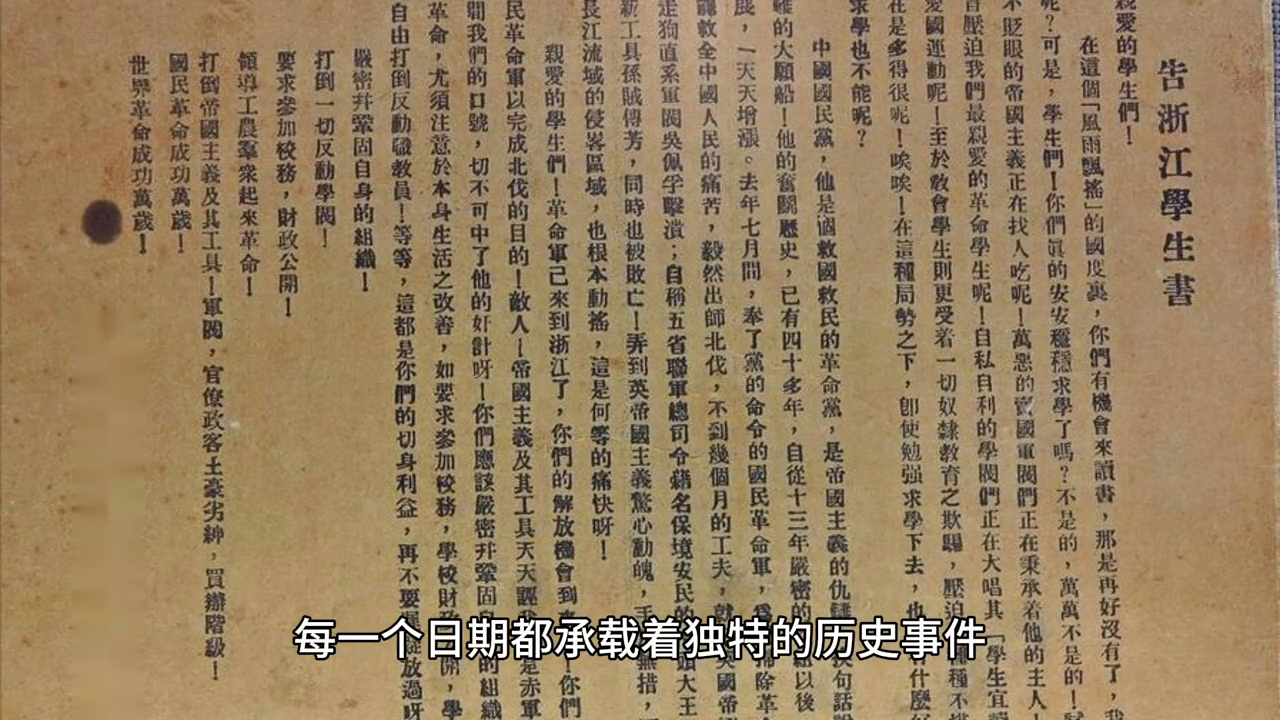 告浙江學生書
親愛的學生們！
在這個「風雨飄搖」的國度裏，你們有機會來讀書，那是再好沒有了，我
呢？可是，學生們！你們眞的安安穩穩求學了嗎？不是的，萬萬不是的！
不眨眼的帝國主義正在找人吃呢！萬惡的賣國軍閥們正在秉承着他的主人！
壓迫我們最親愛的革命學生呢！自私自利的學閥們正在大唱其「學生宜讀
愛國運動呢！至於敎會學生則更受着一切奴隸敎育之欺騙，壓迫
在是多得很呢！唉唉！在這種局勢之下，卽使勉强求學下去，也 什麼
求學也不能呢？
中國國民黨，他是個救國救民的革命黨，是帝國主義的仇讎 換句話說
難的大願船！他的奮鬭歷史，已有四十多年，自從十三年嚴密的 組以後
展，一天天增漲。去年七月間，奉了黨的命令的國民革命軍，爲 掃除革命
救全中國人民的痛苦，毅然出師北伐，不到幾個月的工夫，就 英國帝
走狗直系軍閥吳佩孚擊潰；自稱五省聯軍總司令藉名保境安民的 頭大王
新工具孫賊傳芳，同時也被敗亡！弄到英帝國主義驚心動魄，手 無措，
長江流域的侵畧區域，也根本動搖，這是何等的痛快呀！
親愛的學生們！革命軍已來到浙江了，你們的解放機會到 ！你們
民革命軍以完成北伐的目的！敵人！帝國主義及其工具天天誣我 是赤軍
間我們的口號，切不可中了他的奸計呀！你們應該嚴密幷鞏固自 的組織
革命，尤須注意於本身生活之改善，如要求參加校務，學校財政 開，學
自由打倒反動職敎員！等等，這都是你們的切身利益，再不要 放過呀
嚴密幷鞏固自身的組織！
打倒一切反動學閥！
要求參加校務，財政公開！
領導工農羣衆起來革命！
打倒帝國主義及其工具！軍閥，官僚政客土豪劣紳，買辦階級！
國民革命成功萬歲！
世界革命成功萬歲！
每一个日期都承载着独特的历史事件